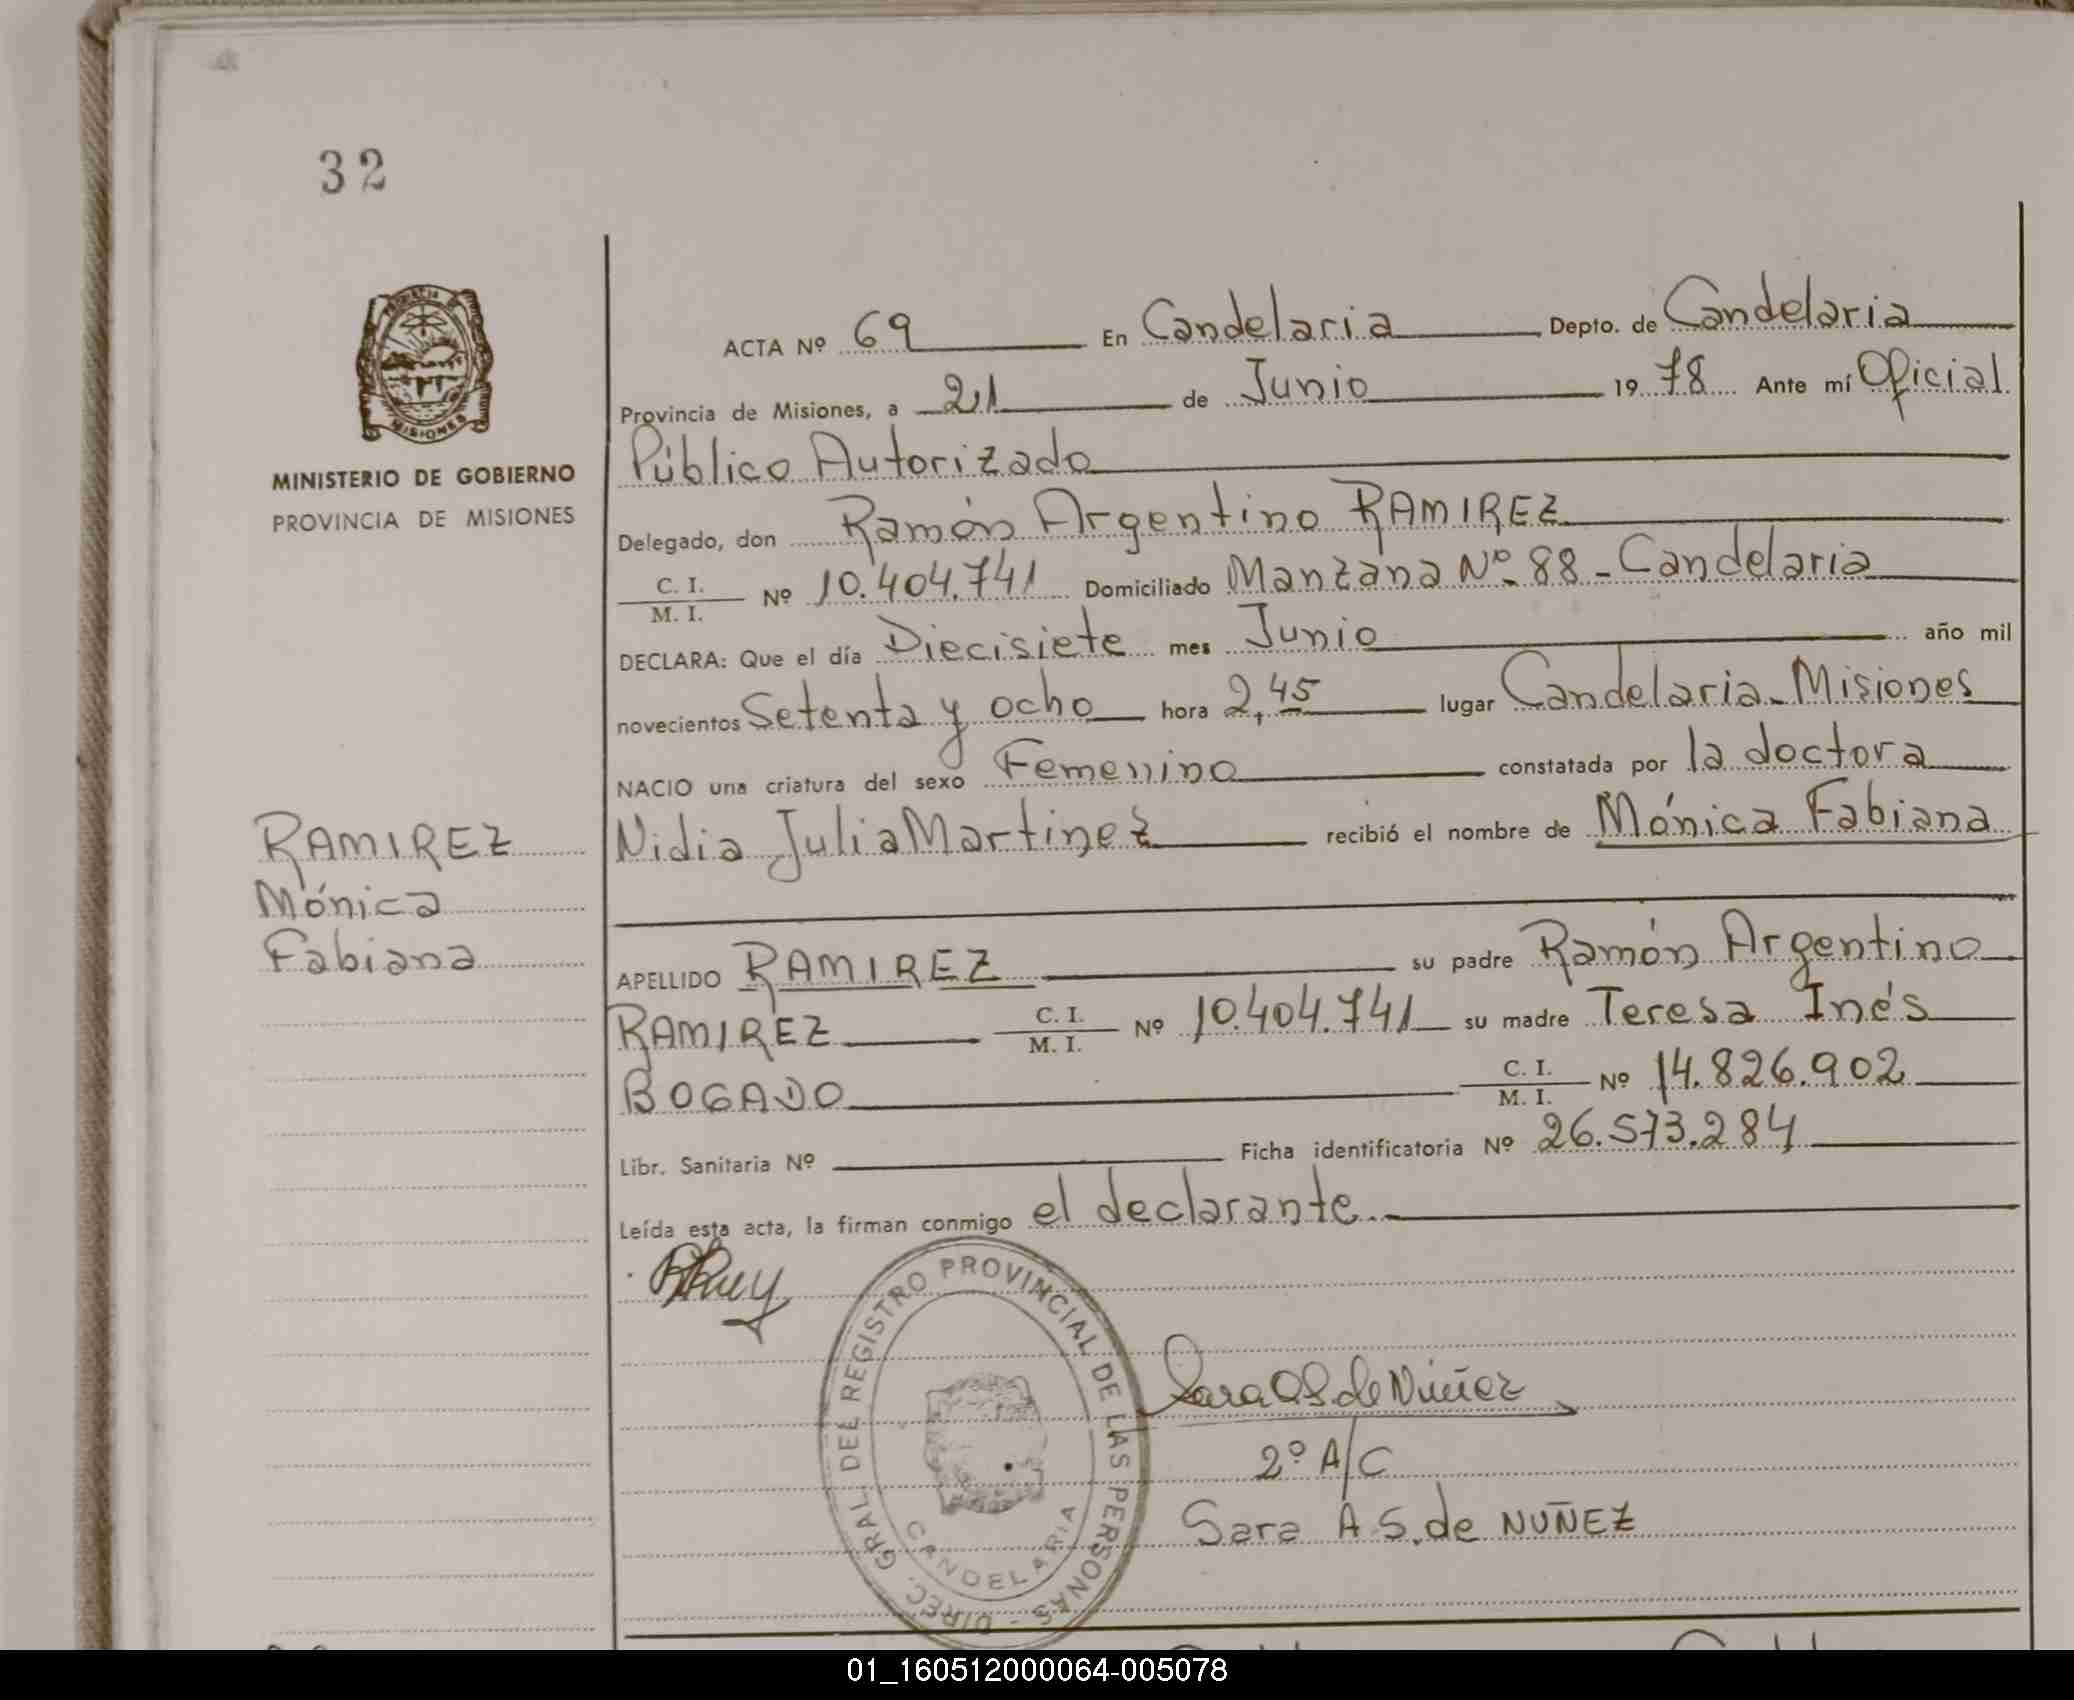 32
PROVINCIA DE
MISIONES
MINISTERIO DE GOBIERNO
PROVINCIA DE MISIONES
RAMIREZ
Mónica
Fabiana
ACTA Nº 69 En Candelaria Depto. de Candelaria
Provincia de Misiones, a 21 de Junio 19 78 Ante mí Oficial
Público Autorizado
Delegado, don Ramón Argentino RAMIREZ
C. I.
M. I. Nº 10.404.741 Domiciliado Manzana Nº 88 - Candelaria
DECLARA: Que el día Diecisiete mes Junio año mil
novecientos Setenta y ocho hora 2,45 lugar Candelaria - Misiones
NACIO una criatura del sexo Femenino constatada por la doctora
Nidia Julia Martinez recibió el nombre de Mónica Fabiana
APELLIDO RAMIREZ su padre Ramón Argentino
RAMIREZ C. I. M. I. Nº 10.404.741 su madre Teresa Inés
BOGADO C. I. M. I. Nº 14.826.902
Libr. Sanitaria Nº Ficha identificatoria Nº 26.573.284
Leída esta acta, la firman conmigo el declarante.-
DIREC. GRAL. DEL REGISTRO PROVINCIAL DE LAS PERSONAS -
CANDELARIA
Sara A S. de Núñez
2º A/C
Sara A. S. de NUÑEZ
01_160512000064-005078